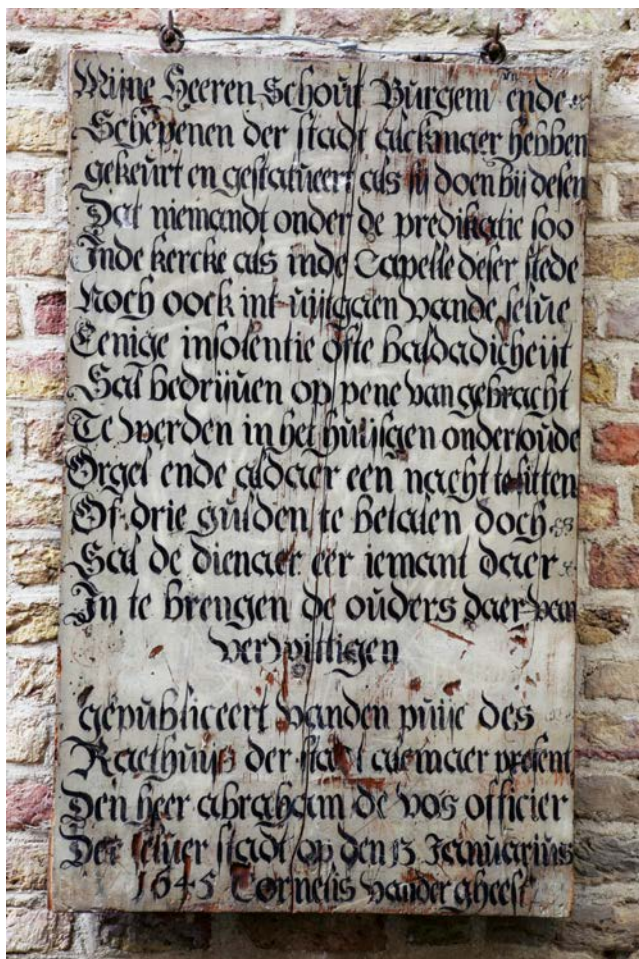 Mijne Heeren Schout Burgem ende
Schepenen der stadt alckmaer hebben
gekeurt en gestatueert als sij doen bij desen
Dat niemandt onder de predikatie soo
Inde kercke als inde Capelle deser stede
Noch oock int uijtgaen vande selve
Eenige insolentie ofte baldadicheijt
Sal bedrijven op pene van gebracht
Te werden in het huijsgen onder oude
Orgel ende aldaer een nacht te sitten
Of drie gulden te betalen doch
Sal de dienaer eer iemant daer
In te brengen de ouders daer van
verwittigen
gepubliceert vanden puije des
Raethuijs der stadt alcmaer present
Den heer abraham de vos officier
Der selver stadt op den 13 Januarius
1645 Cornelis vander gheest